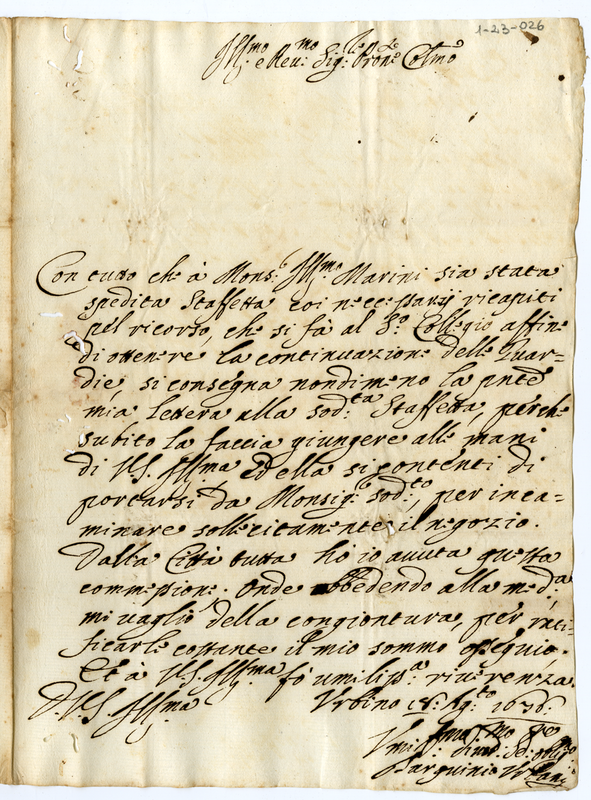 1-23-026
Ill:mo e Reu:mo Sig:re Pron:e Col:mo
Con tutto che à Mons:r Ill:mo Marini sia stata
spedita Staffetta coi necessarij ricapiti
pel ricorso, che si fà al S:o Collegio affine
di ottenere la continuazione delle Guar=
die, si consegna nondimeno la pnte
mia lettera alla sod:ta Staffetta, perche
subito la faccia giungere alle mani
di V.S. Ill:ma, ed ella si contenti di
portarsi da Monsig:r sod:to, per inca=
minare sollecitamente il negozio.
Dalla Città tutta ho io avuta questa
commessione. Onde obbedendo alla med:a
mi vaglio della congiontura, per rati=
ficarle costante il mio sommo ossequio.
Et à V.S. Ill:ma fò umiliss:a riuerenza.
D. V.S. Ill:ma Vrbino 18: Ag:to 1676.
Tarquinio